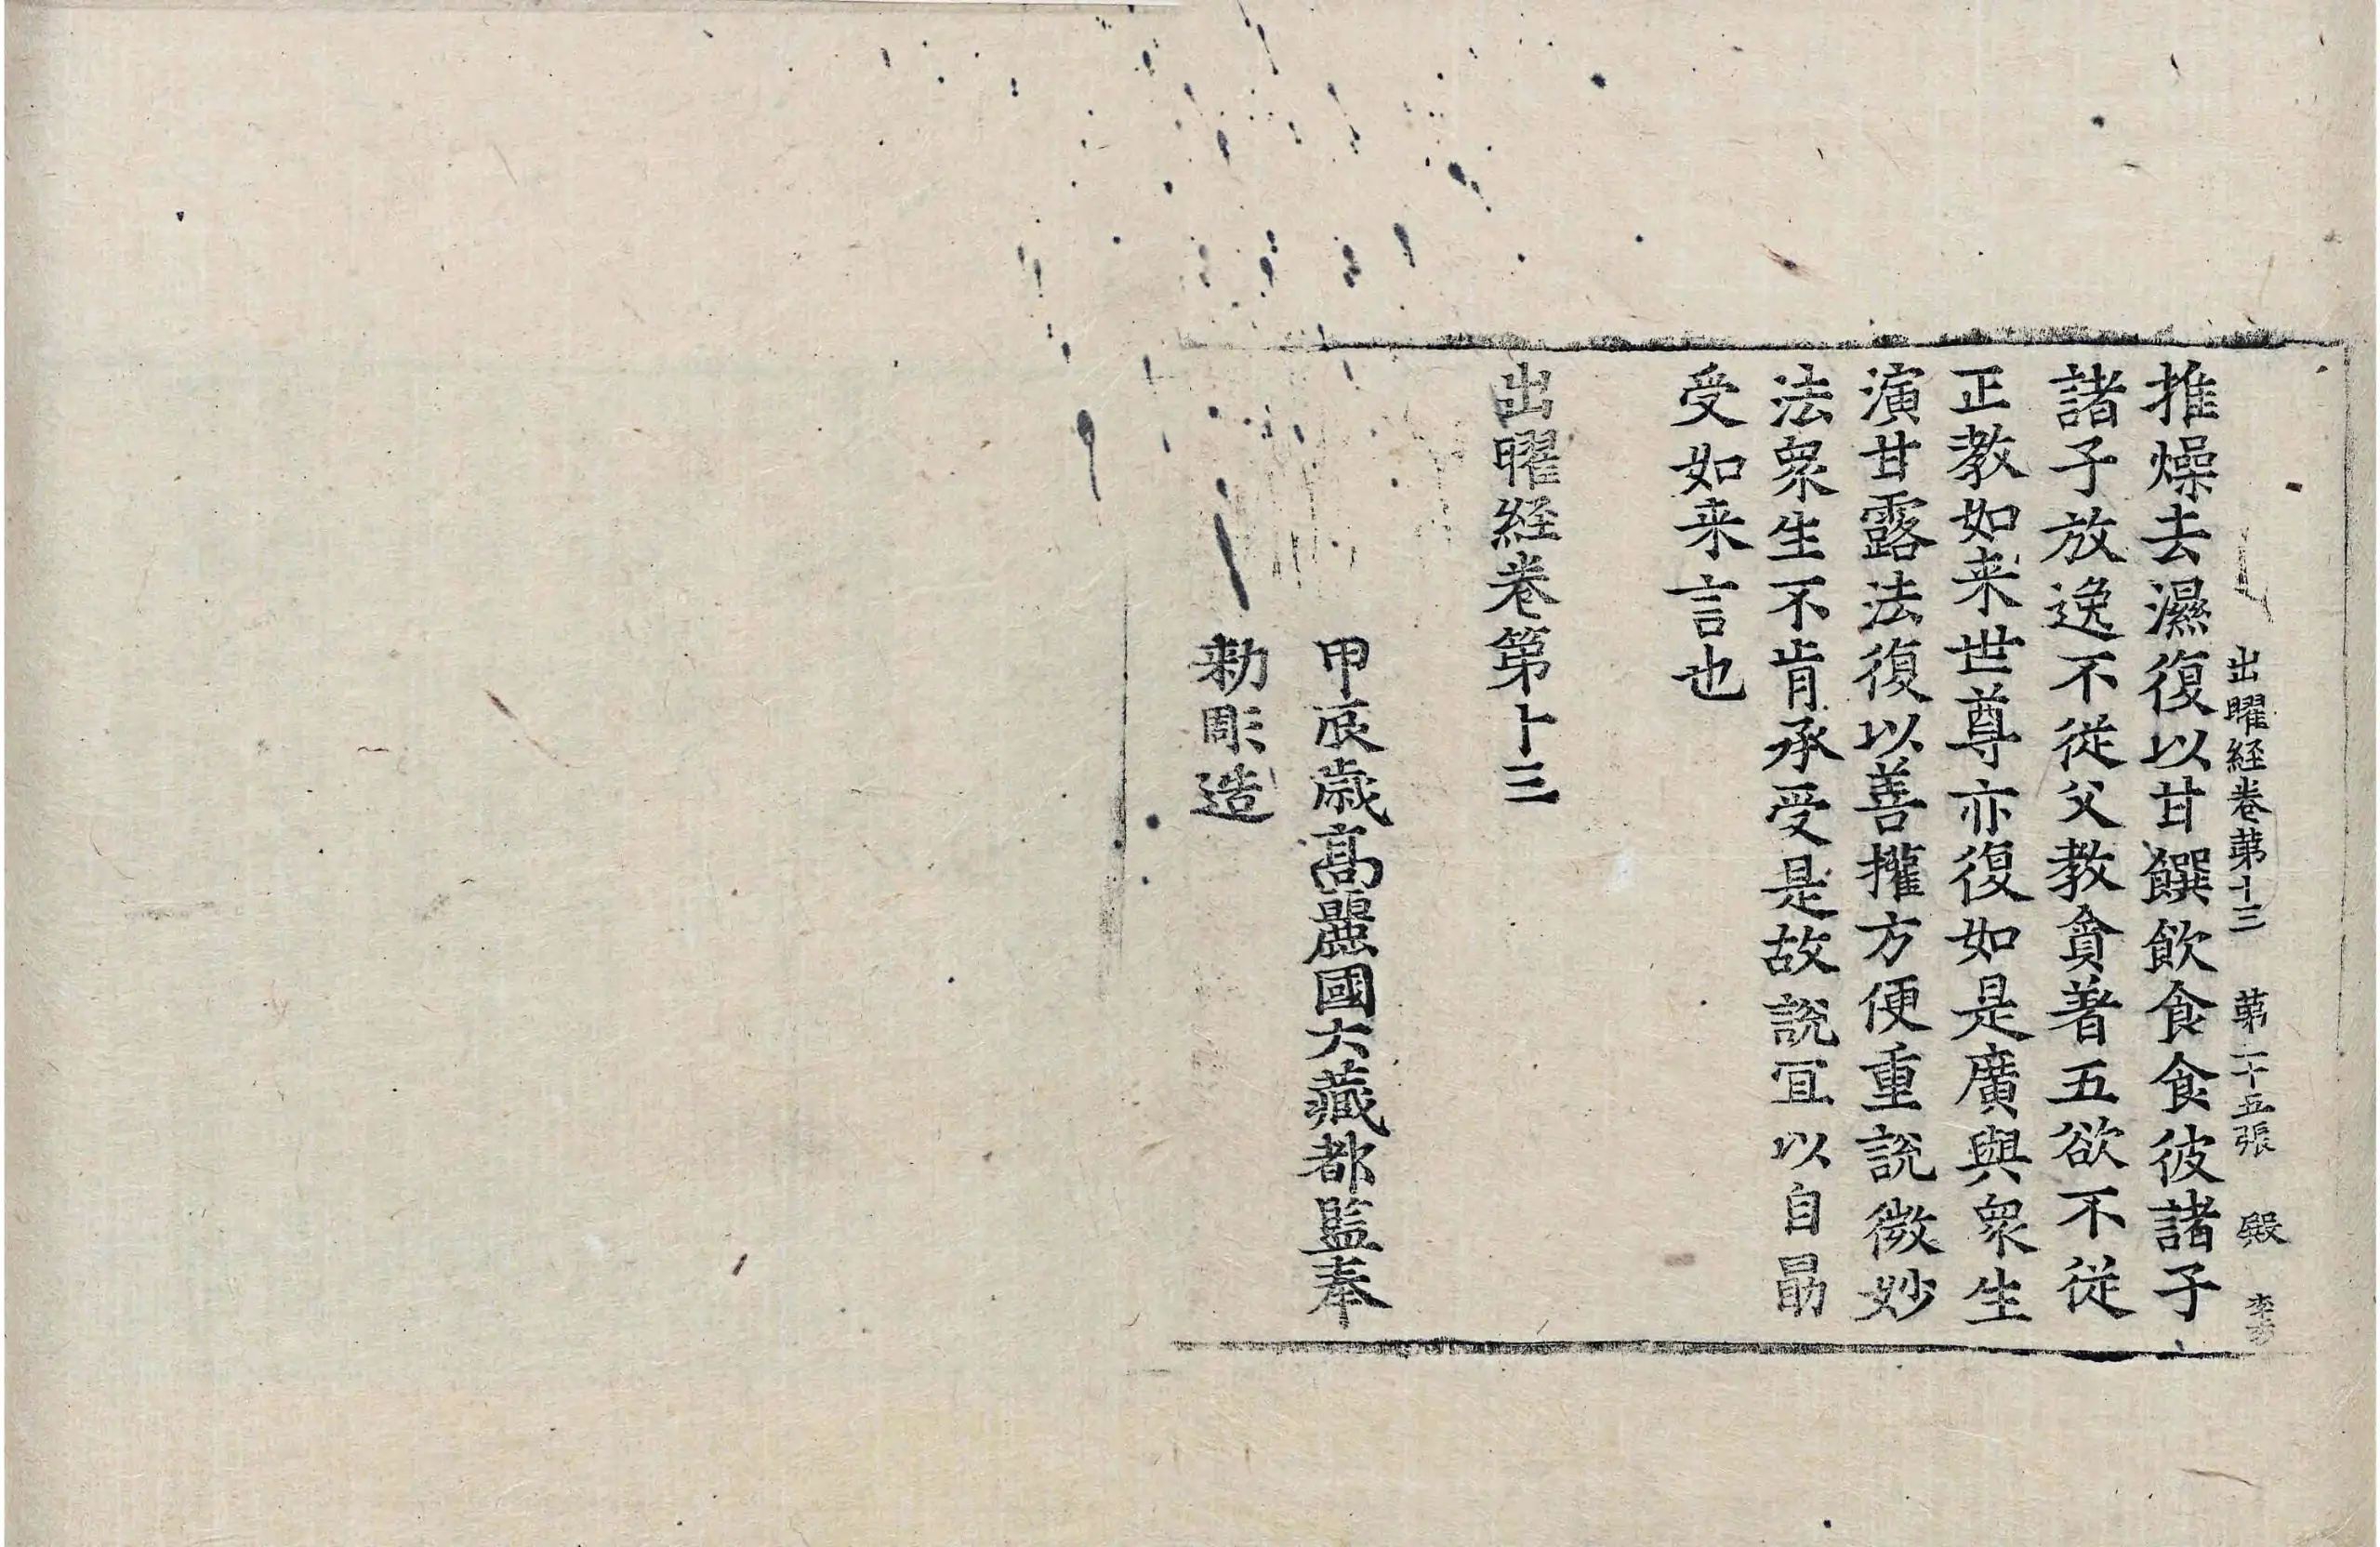 出曜経卷苐十三　苐二十五張　殿　李
推燥去濕復以甘饌飲食食彼諸子
諸子放逸不從父教貪著五欲不從
正教如来世尊亦復如是廣與衆生
演甘露法復以善權方便重說微妙
法衆生不肯承受是故說冝以自勗
受如来言也
出曜経卷第十三
甲辰歳高麗國大藏都監奉
勑彫造